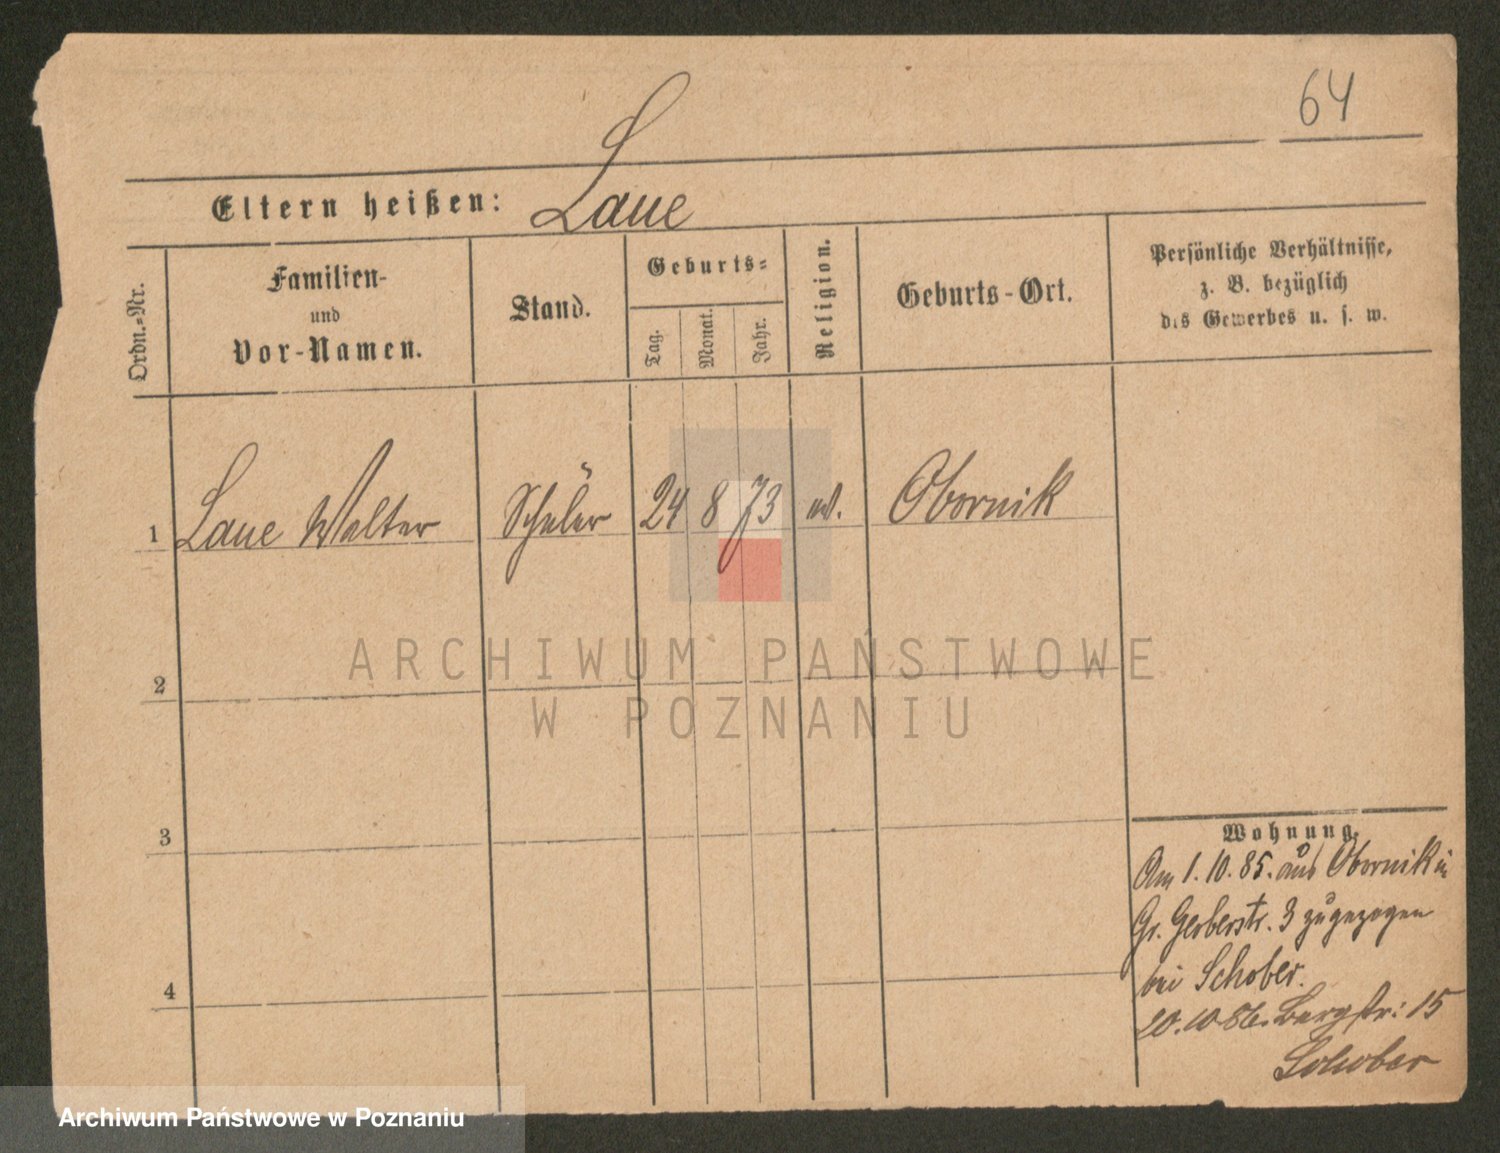 64
Eltern heißen: Laue
Ordn.-Nr.
Familien-
und
Vor-Namen.
Stand.
Geburts-
Tag.
Monat.
Jahr.
Religion.
Geburts-Ort.
Persönliche Verhältnisse,
z. B. bezüglich
des Gewerbes u. s. w.
1 Laue Walter Schüler 24 8 73 ev. Obornik
2
3
4
ARCHIWUM PAŃSTWOWE
W POZNANIU
Wohnung.
Am 1. 10. 85. aus Obornik in
Gr. Gerberstr. 3 zugezogen
bei Schober.
20. 10 86. Bergstr: 15
Schober
Archiwum Państwowe w Poznaniu